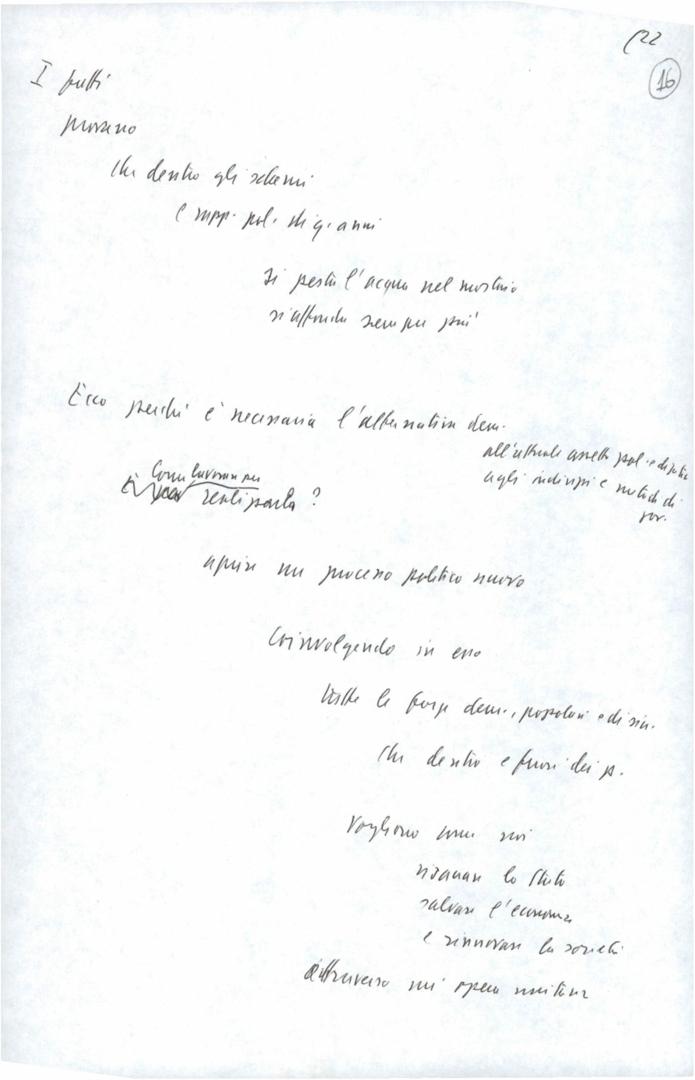 (22
16
I fatti
provano
che dentro gli schemi
e rapp. pol. di q. anni
si pesta l'acqua nel mortaio
si affonda sempre più
Ecco perché è necessaria l'alternativa dem.
all'attuale assetto pol. e di potere
agli indirizzi e metodi di
gov.
Come lavorare per
realizzarla?
aprire un processo politico nuovo
Coinvolgendo in esso
tutte le forze dem., popolari e di sin.
che dentro e fuori dei p.
vogliono come noi
risanare lo Stato
salvare l'economia
e rinnovare la società
attraverso un'opera unitaria